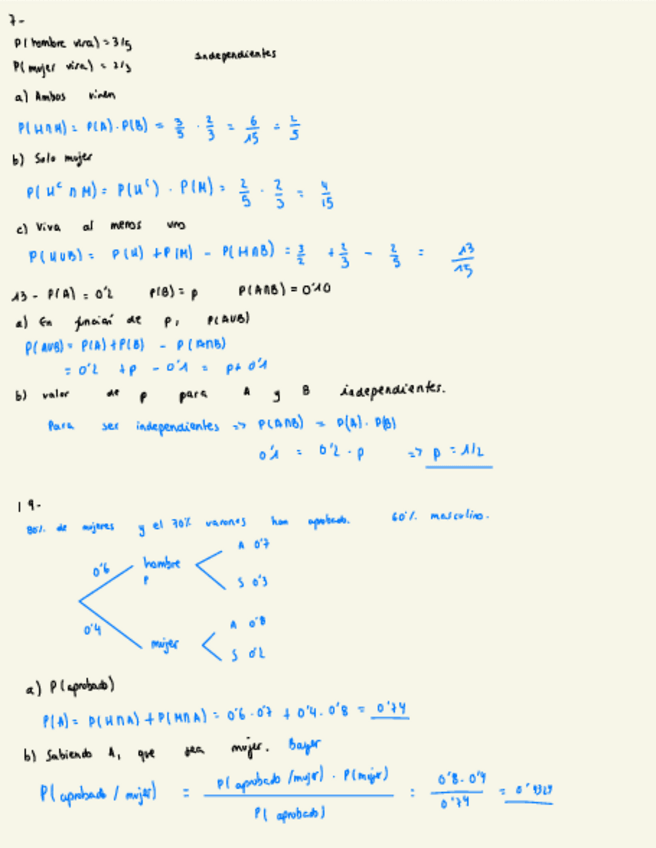 7-
P(hombre viva) = 3/5
P(mujer viva) = 2/3
Independientes
a) Ambos viven
P(H∩M) = P(A)·P(B) = 3/5 · 2/3 = 6/15 = 2/5
b) Solo mujer
P(H^c ∩ M) = P(H^c) · P(M) = 2/5 · 2/3 = 4/15
c) Viva al menos uno
P(H∪B) = P(H) + P(M) - P(H∩B) = 3/2 + 2/3 - 2/5 = 13/15
13 - P(A) = 0'2 P(B) = p P(A∩B) = 0'10
a) En función de p, P(A∪B)
P(A∪B) = P(A) + P(B) - P(A∩B)
= 0'2 + p - 0'1 = p + 0'1
b) valor de p para A y B independientes.
Para ser independientes => P(A∩B) = P(A)·P(B)
0'1 = 0'2 · p => p = 1/2
19-
80% de mujeres y el 70% varones han aprobado. 60% masculino.
A 0'7
0'6 hombre
P
S 0'3
A 0'8
0'4 mujer
S 0'2
a) P(aprobado)
P(A) = P(H∩A) + P(M∩A) = 0'6·0'7 + 0'4·0'8 = 0'74
b) Sabiendo A, que sea mujer. Bayes
P(aprobado / mujer) = P(aprobado/mujer) · P(mujer) / P(aprobado) = 0'8·0'4 / 0'74 =